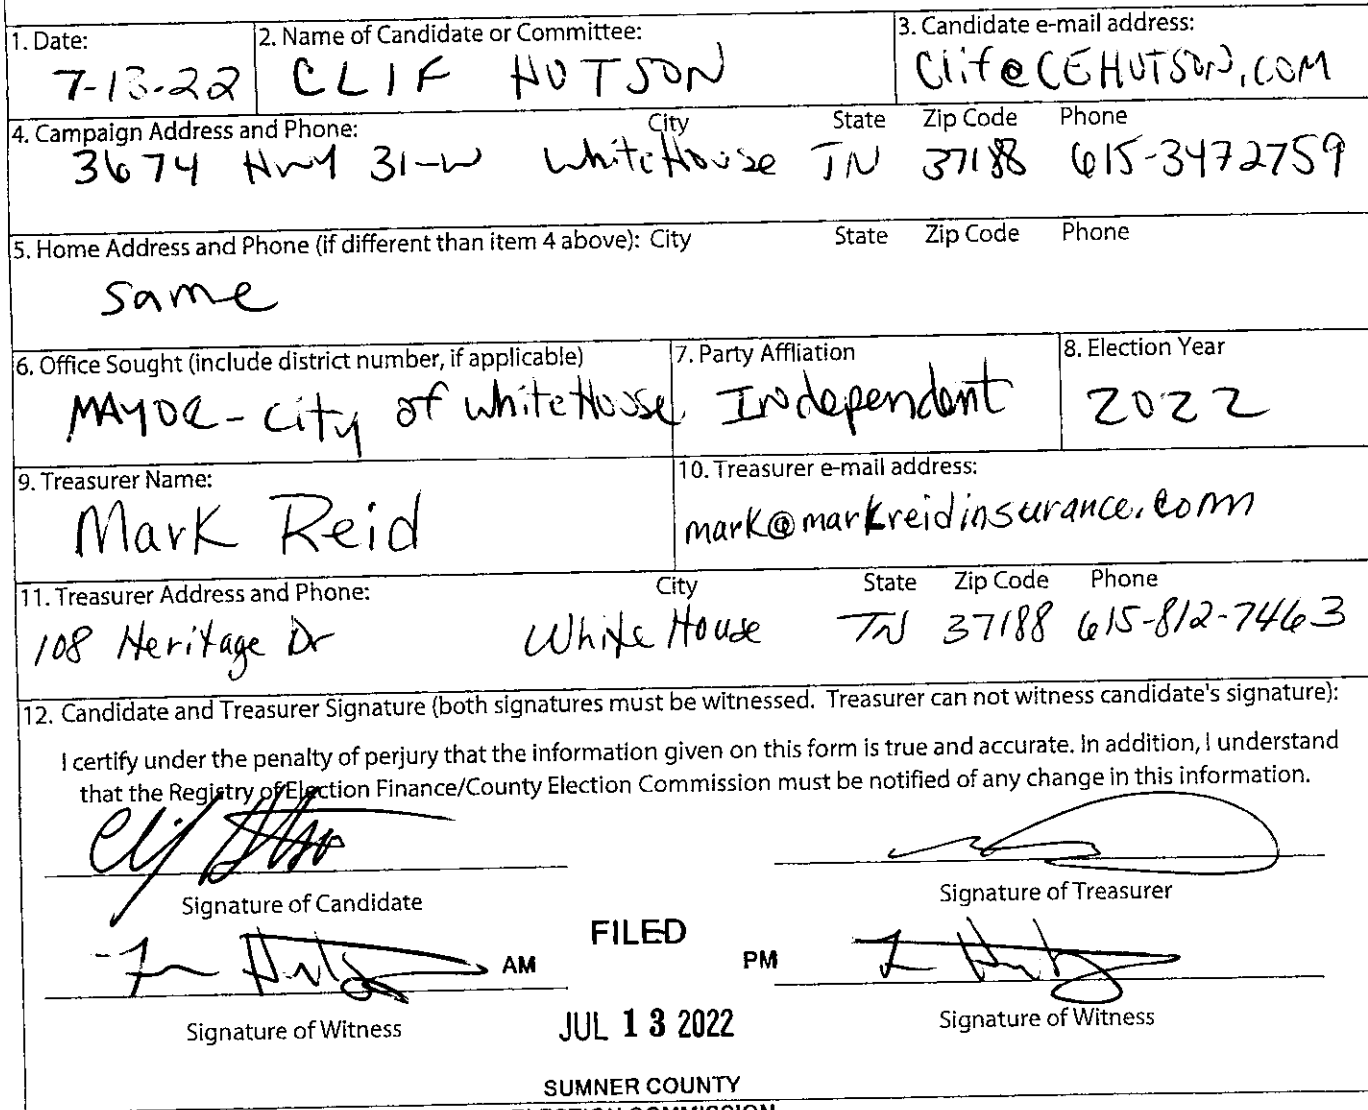 1. Date: 2. Name of Candidate or Committee: 3. Candidate e-mail address:
7-13-22 CLIF HUTSON Clif@CEHUTSON.COM
4. Campaign Address and Phone: City State Zip Code Phone
3674 Hwy 31-W White House TN 37188 615-3472759
5. Home Address and Phone (if different than item 4 above): City State Zip Code Phone
Same
6. Office Sought (include district number, if applicable) 7. Party Affliation 8. Election Year
MAYOR - City of White House Independent 2022
9. Treasurer Name: 10. Treasurer e-mail address:
Mark Reid mark@markreidinsurance.com
11. Treasurer Address and Phone: City State Zip Code Phone
108 Heritage Dr White House TN 37188 615-812-7463
12. Candidate and Treasurer Signature (both signatures must be witnessed. Treasurer can not witness candidate's signature):
I certify under the penalty of perjury that the information given on this form is true and accurate. In addition, I understand
that the Registry of Election Finance/County Election Commission must be notified of any change in this information.
Signature of Candidate Signature of Treasurer
FILED
AM PM
Signature of Witness JUL 13 2022 Signature of Witness
SUMNER COUNTY
ELECTION COMMISSION